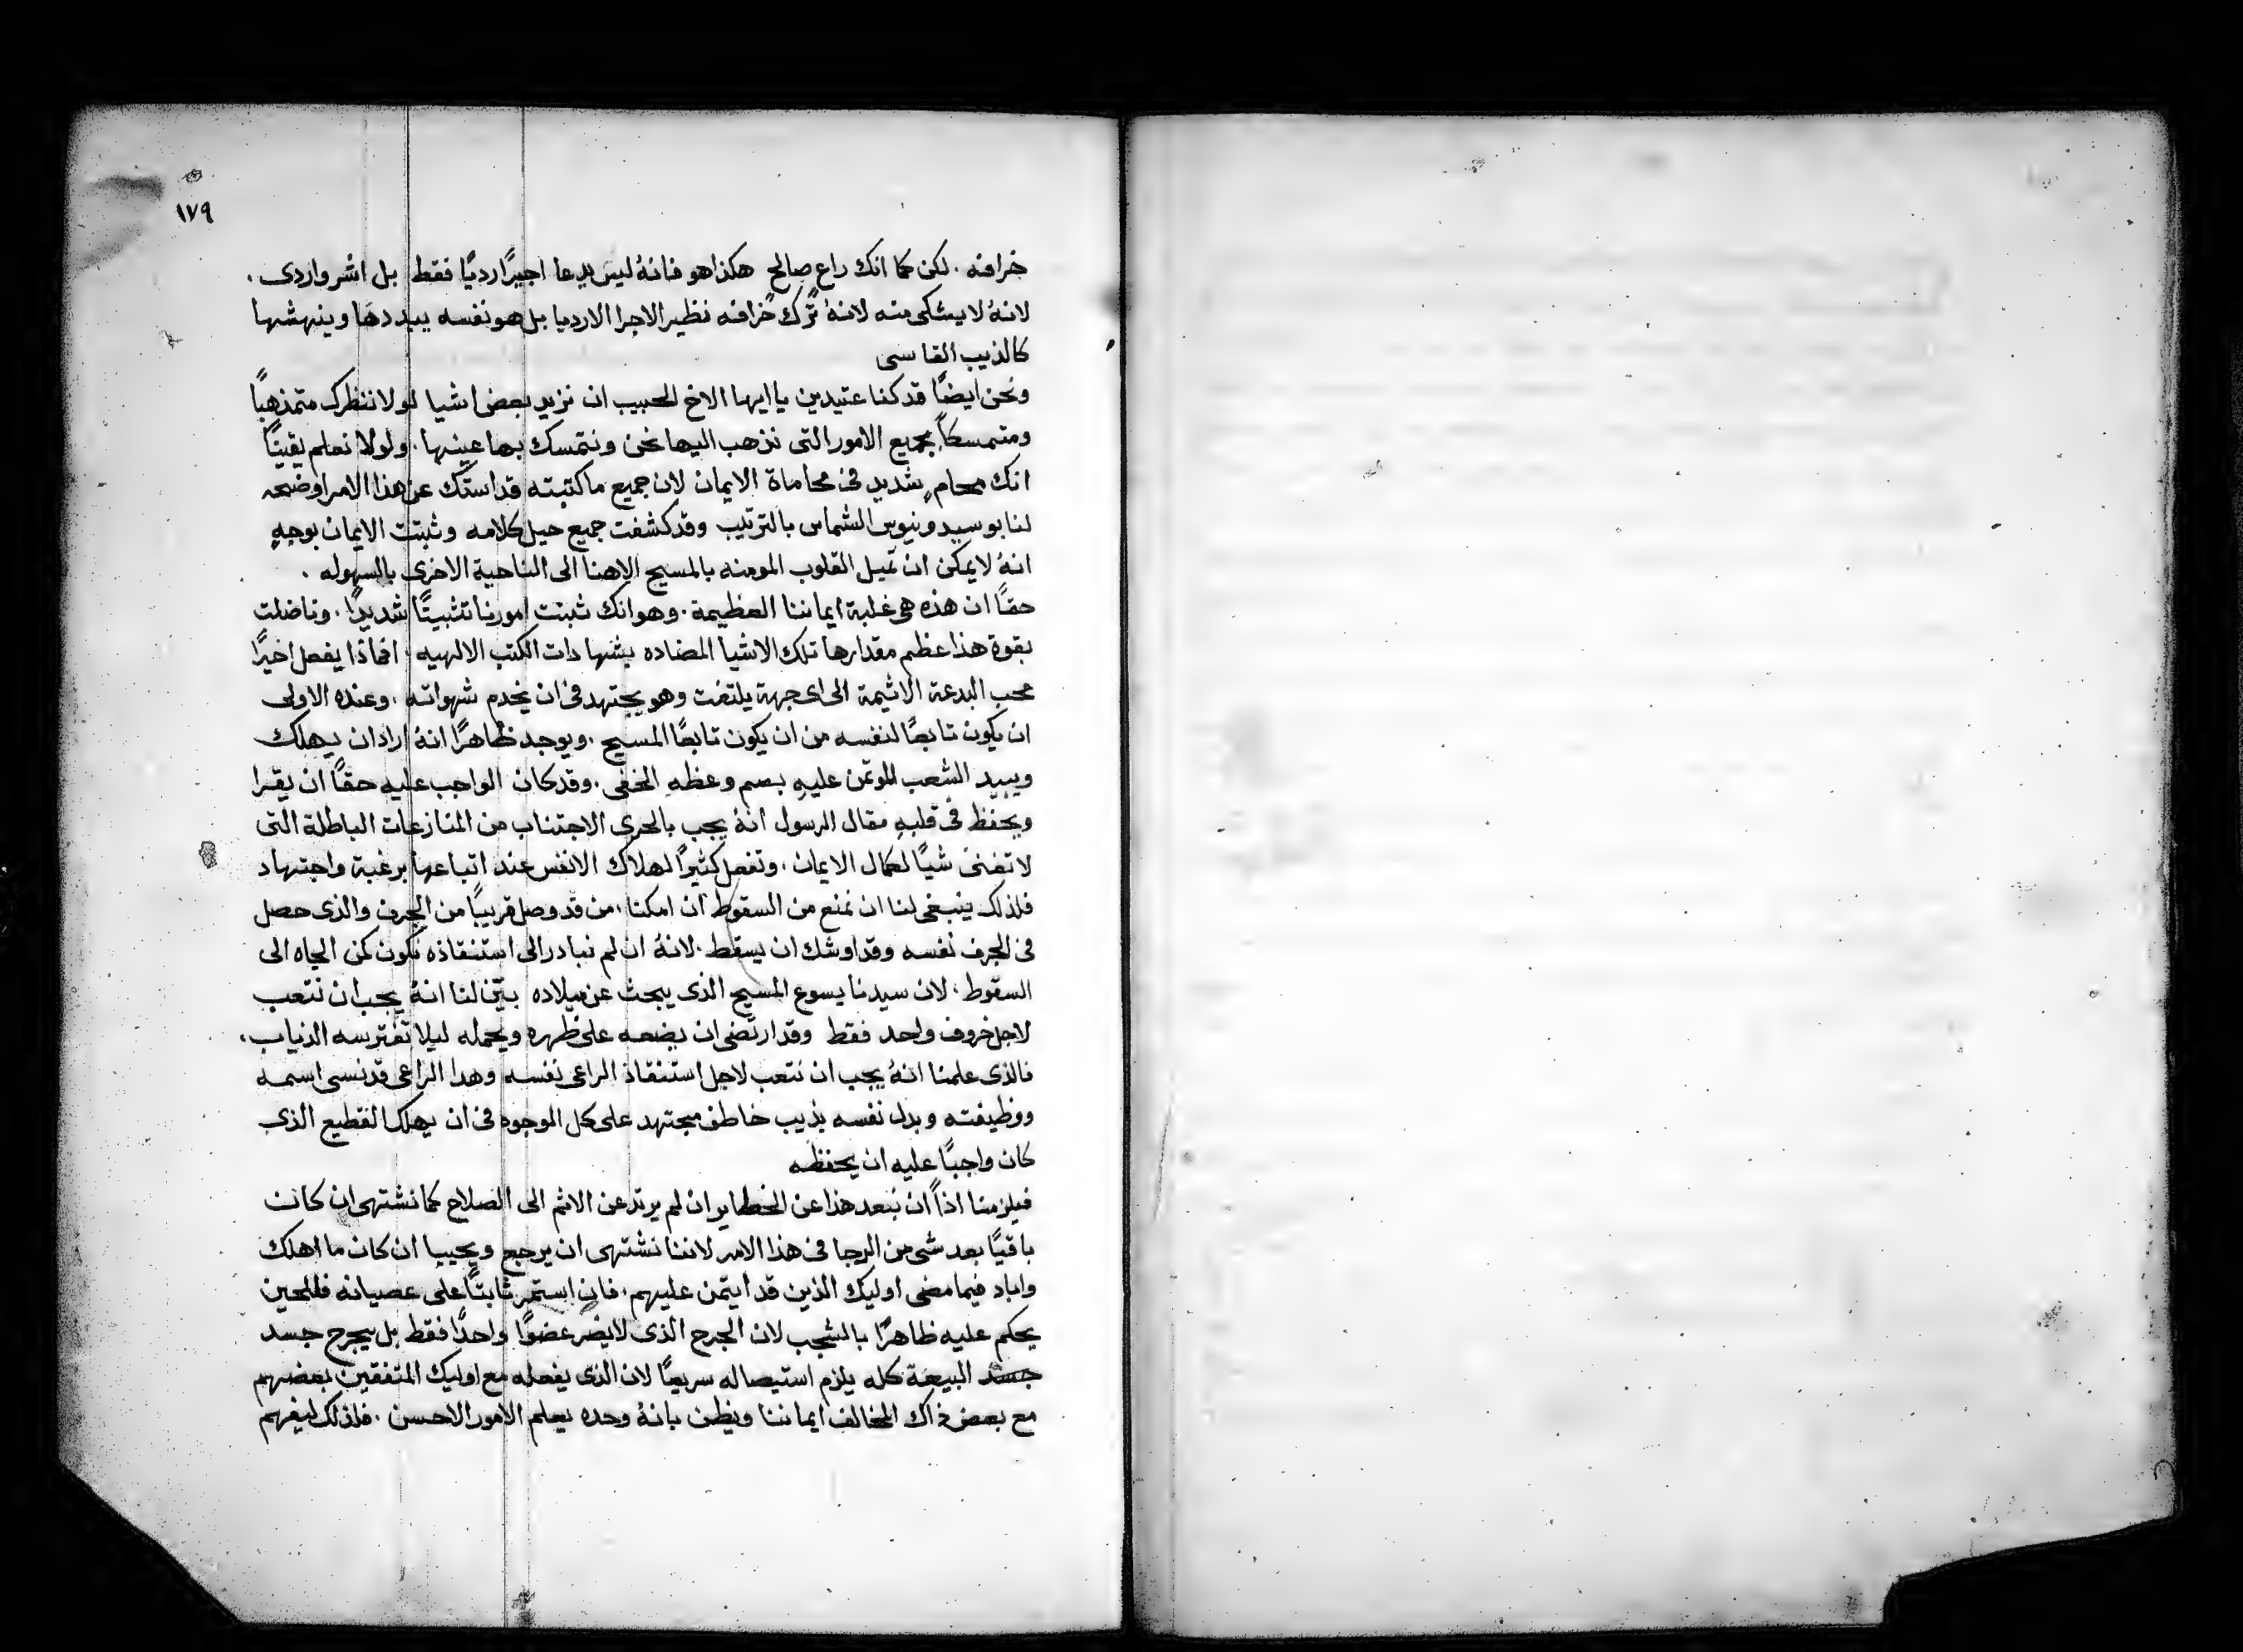 ١٧٩
خرافه . لكن كما انك راع صالح هكذا هو فانهُ ليس يدعا اجيرًا رديًا فقط بل اشر واردى .
لانهُ لا يشتكى منه لانهُ تَرك خرافه نظير الاجرا الارديا بل هو نفسه يبددها وينهشها
كالذيب القاسى
ونحن ايضًا قد كنا عتيدين يا ايها الاخ الحبيب ان نزيد بعض اشيا لولا ننظرك متمذهبًا
ومتمسكاً بجميع الامور التى نذهب اليها نحن ونتمسك بها عينها . ولولا نعلم يقينًا
انك محامٍ شديد فى محاماة الايمان لان جميع ما كتبته قداستك عن هذا الامر اوضحه
لنا بوسيدونيوس الشماس بالترتيب وقد كشفت جميع حيل كلامه وثبتت الايمان بوجهٍ
انهُ لا يمكن ان تميل القلوب المومنه بالمسيح الاهنا الى الناحية الاخرى بالسهوله .
حقًا ان هذه هى غلبة ايماننا العظيمة . وهو انك ثبتت امورنا تثبيتًا شديدًا . وناضلت
بقوة هذا عظم مقدارها تلك الاشيا المضاده بشهادات الكتب الالهيه . افماذا يفعل اخيرًا
محب البدعة الاثيمة الى اى جهة يلتفت وهو يجتهد فى ان يخدم شهواته . وعنده الاولى
ان يكون تابعًا لنفسه من ان يكون تابعًا المسيح . ويوجد ظاهرًا انهُ اراد ان يهلك
ويبيد الشعب الموتمن عليهِ بسم وعظهِ المخفى . وقد كان الواجب عليه حقًا ان يقرا
ويحفظ فى قلبهِ مقال الرسول انهُ يجب بالحرى الاجتناب من المنازعات الباطلة التى
لا تغنى شيًا لكمال الايمان . وتفعل كثيرًا لهلاك الانفس عند اتباعها برغبة واجتهاد
فلذلك ينبغى لنا ان نمنع من السقوط ان امكنا . من قد وصل قريبًا من الجرف والذى حصل
فى الجرف نفسه وقد اوشك ان يسقط . لانهُ ان لم نبادر الى استنقاذه نكون كمن الجاه الى
السقوط . لان سيدنا يسوع المسيح الذى يبحث عن ميلاده بيّن لنا انهُ يجب ان نتعب
لاجل خروف واحد فقط وقد ارتضى ان يضعه على ظهره ويحمله ليلا تفترسه الذياب .
فالذى علمنا انهُ يجب ان نتعب لاجل استنقاذ الراعى نفسه وهدا الراعى قد نسى اسمه
ووظيفته وبدل نفسه بذيب خاطف مجتهد على كل الوجوه فى ان يهلك القطيع الذى
كان واجبًا عليه ان يحفظه
فيلزمنا اذاً ان نبعد هذا عن الخطاير ان لم يرتد عن الاثم الى الصلاح كما نشتهى ان كانت
باقيًا بعد شى من الرجا فى هذا الامر لاننا نشتهى ان يرجع ويحييا ان كان ما اهلك
واباد فيما مضى اوليك الذين قد ايتمن عليهم . فان استمر ثابتًا على عصيانه فللحين
يحكم عليه ظاهرًا بالشجب لان الجرح الذى لا يضر عضوًا واحدًا فقط بل يجرح جسد
جسد البيعة كله يلزم استيصاله سريعًا لان الذى يفعله مع اوليك المتفقين بعضهم
مع بعض ذاك المخالف ايماننا ويظن بانهُ وحده يعلم الامور الاحسن . فلذلك ليفهم